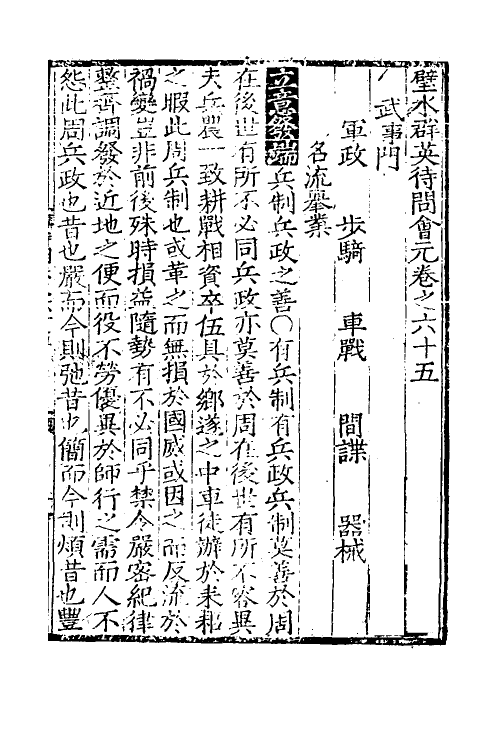 璧水群英待問會元卷之六十五
武事門
軍政 步騎 車戰 間諜 器械
名流舉業
立意發端 兵制兵政之善〇有兵制有兵政兵制莫善於周
在後世有所不必同兵政亦莫善於周在後世有所不容異
夫兵農一致耕戰相資卒伍具於鄉遂之中車徒辦於耒耜
之暇此周兵制也或革之而無損於國威或因之而反流於
禍變豈非前後殊時損益隨勢有不必同乎禁令嚴密紀律
整齊調發於近地之便而役不勞優異於師行之需而人不
怨此周兵政也昔也嚴而今則弛昔也簡而今則煩昔也豐